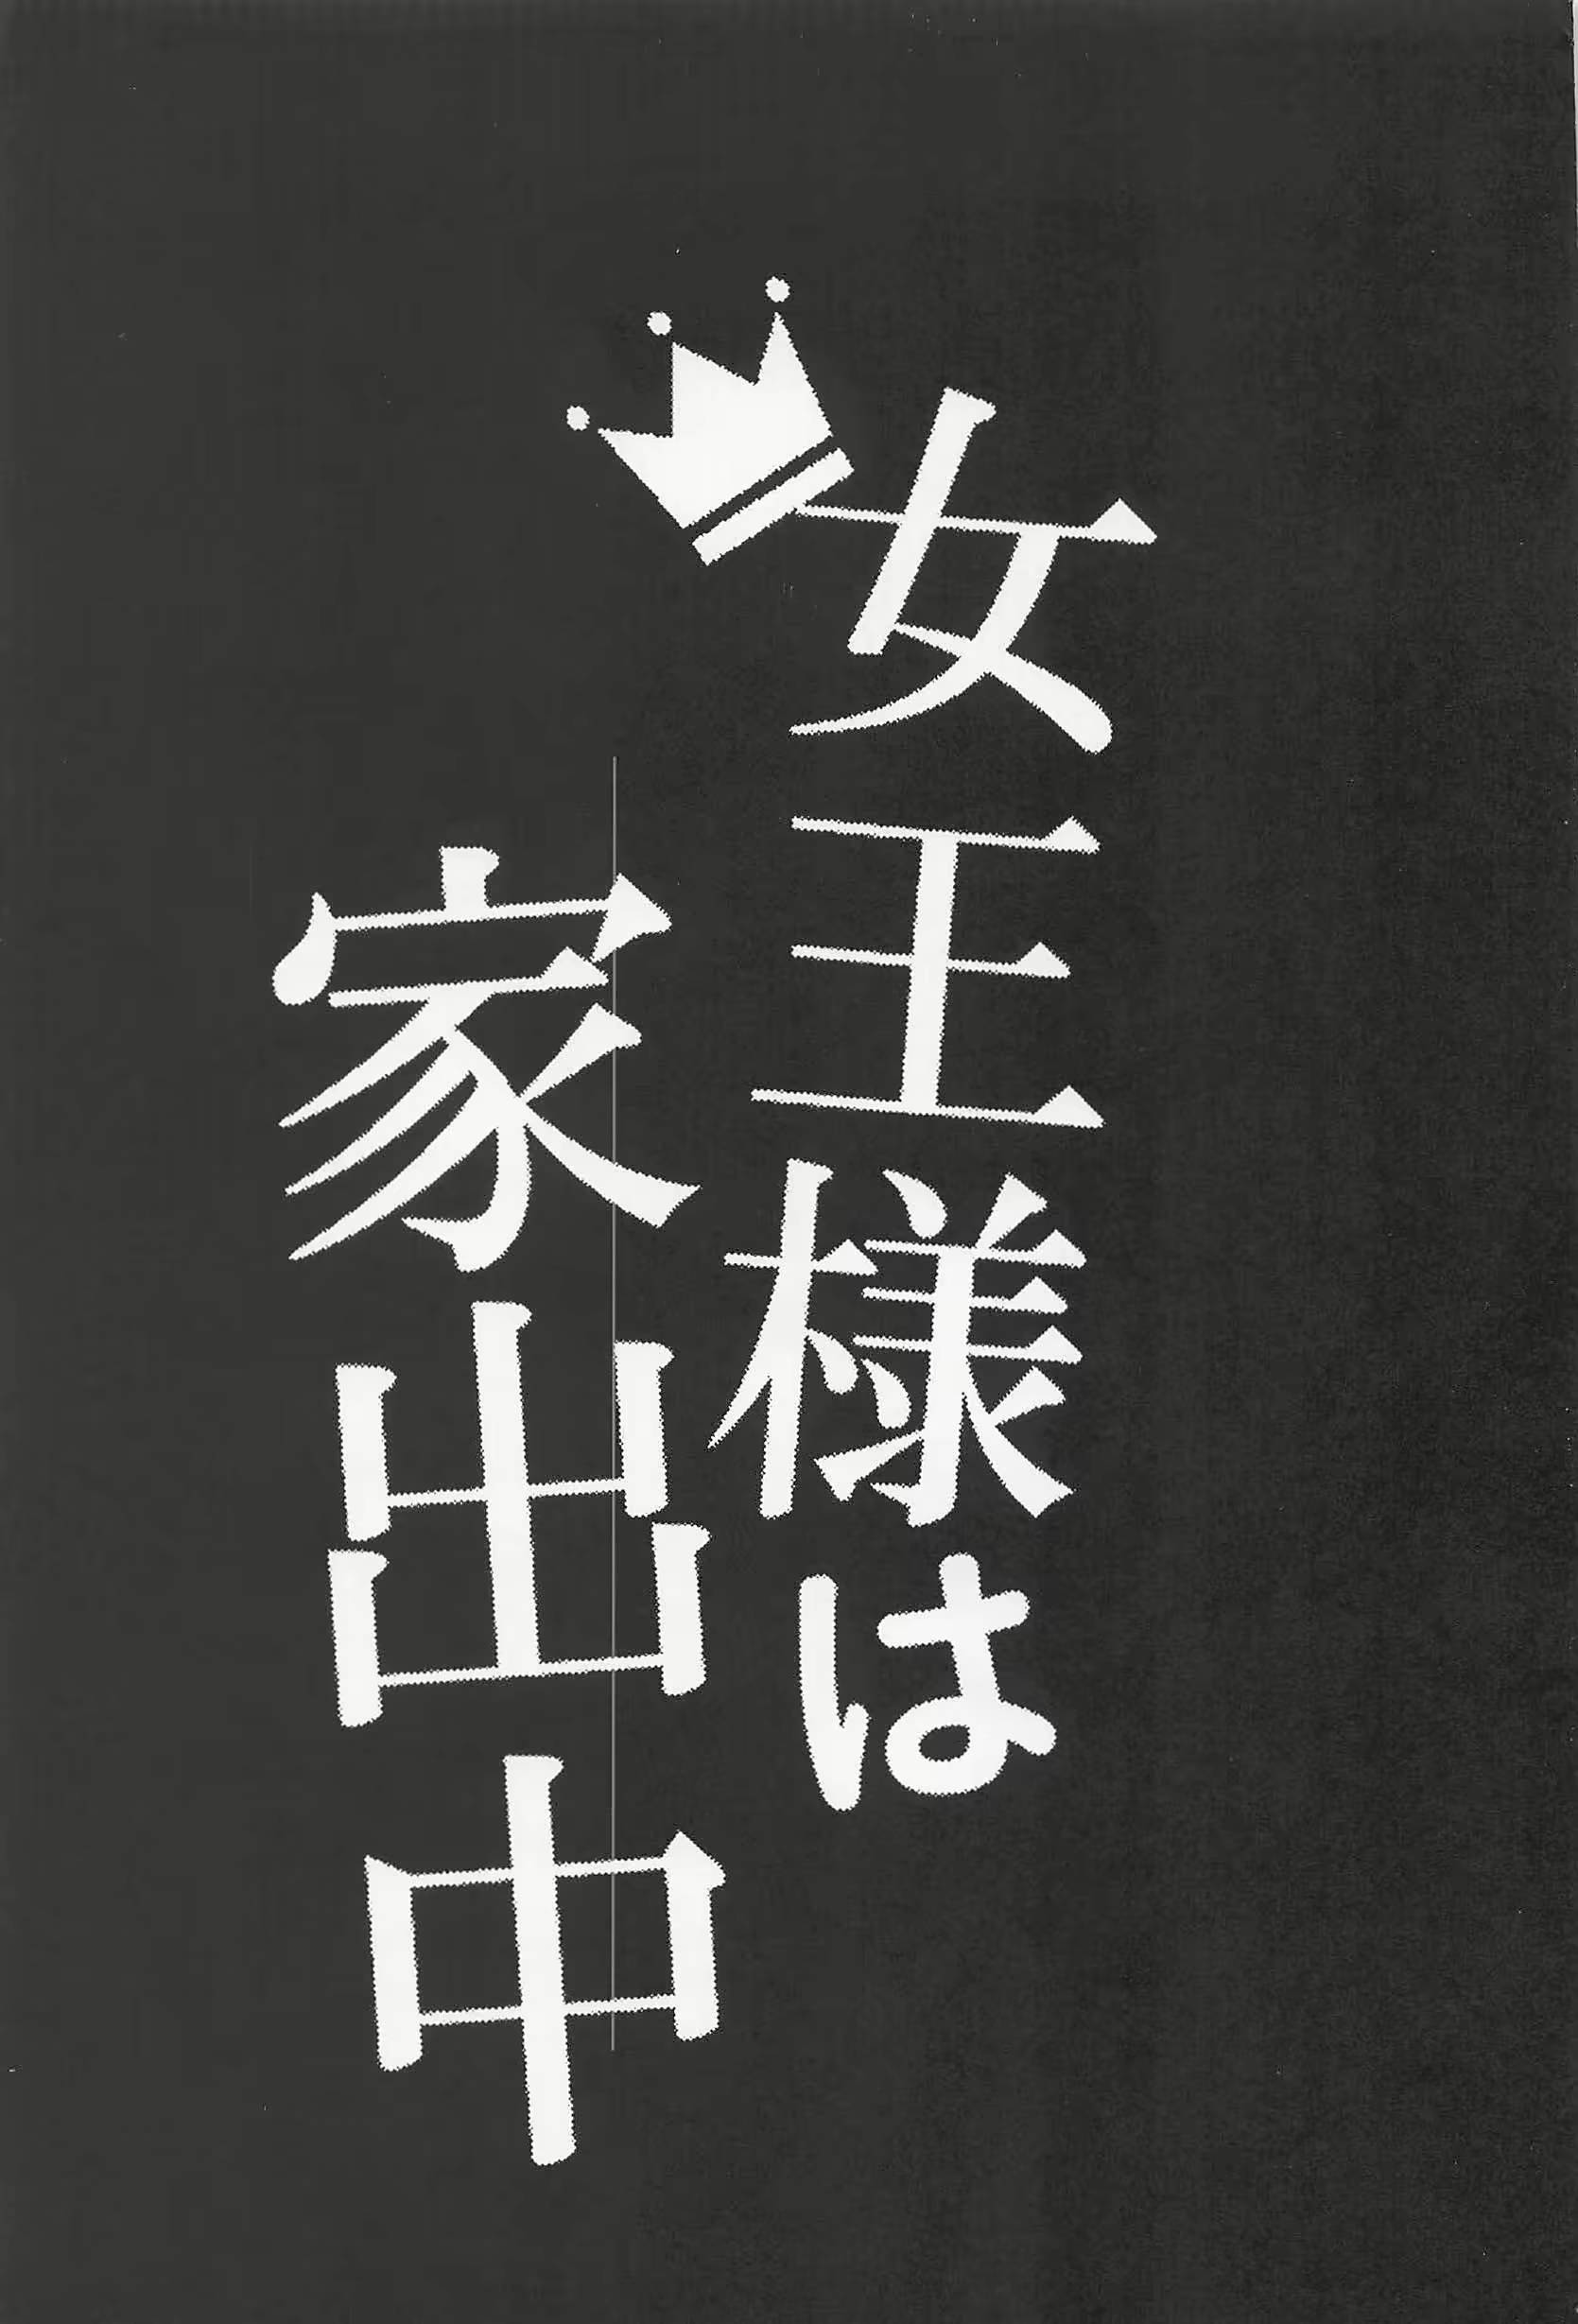 女王様は
家出中